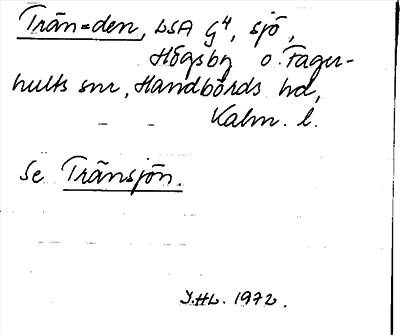 Trän=den, LSA G4, sjö,
Högsby o. Fager-
hults snr, Handbörds hd,
Kalm. l.
Se Tränsjön.
J.HL. 1972.